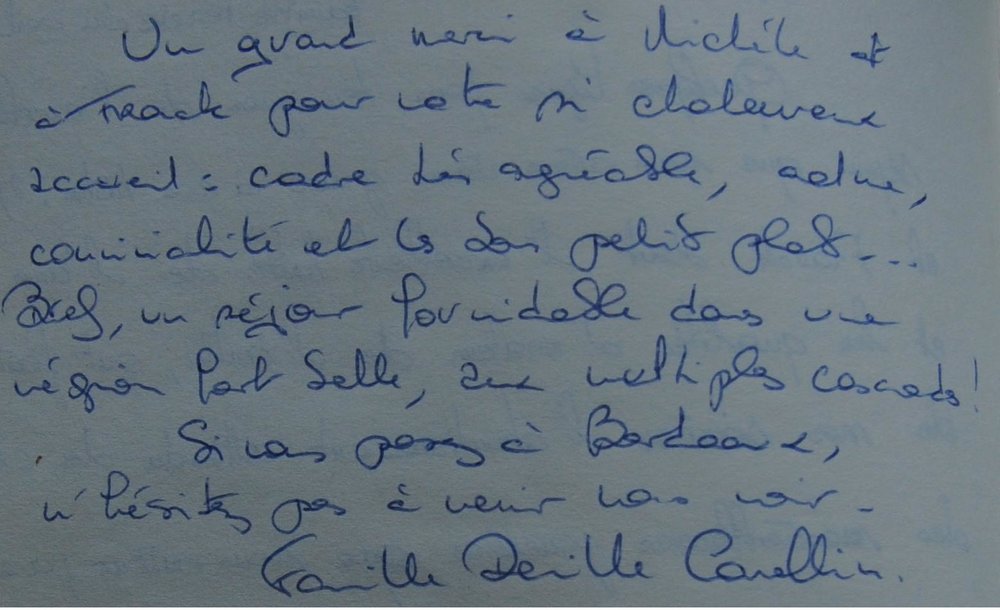 Un grand merci à Michèle et
à pour votre si chaleureux
accueil : cadre très agréable, calme,
convivialité et les bons petits plats...
Bref, un séjour formidable dans une
région fort belle, aux multiples cascades !
Si vous passez à Bordeaux,
n'hésitez pas à venir nous voir.
Famille Deville